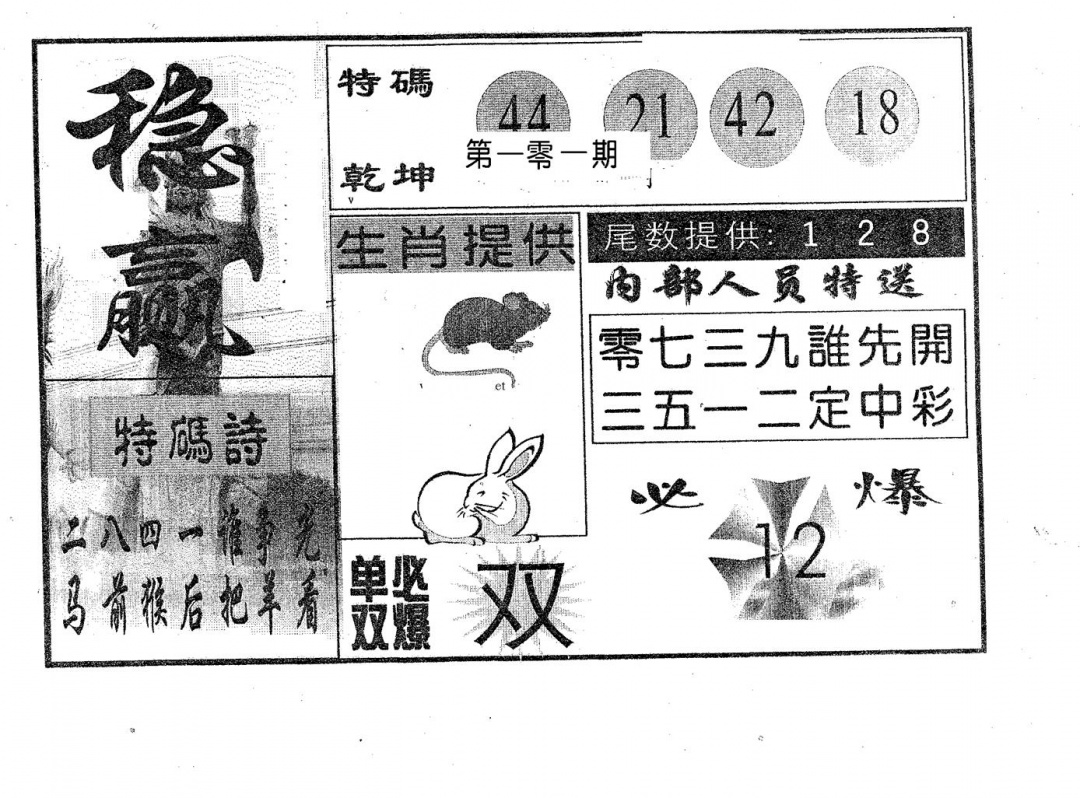 稳
赢
特碼
乾坤
44 21 42 18
第一零一期
生肖提供
et
尾数提供: 1 2 8
内部人员特送
零七三九誰先開
三五一二定中彩
特碼詩
二八四一谁争先
马前猴后把羊看
单必
双爆
双
必爆
12